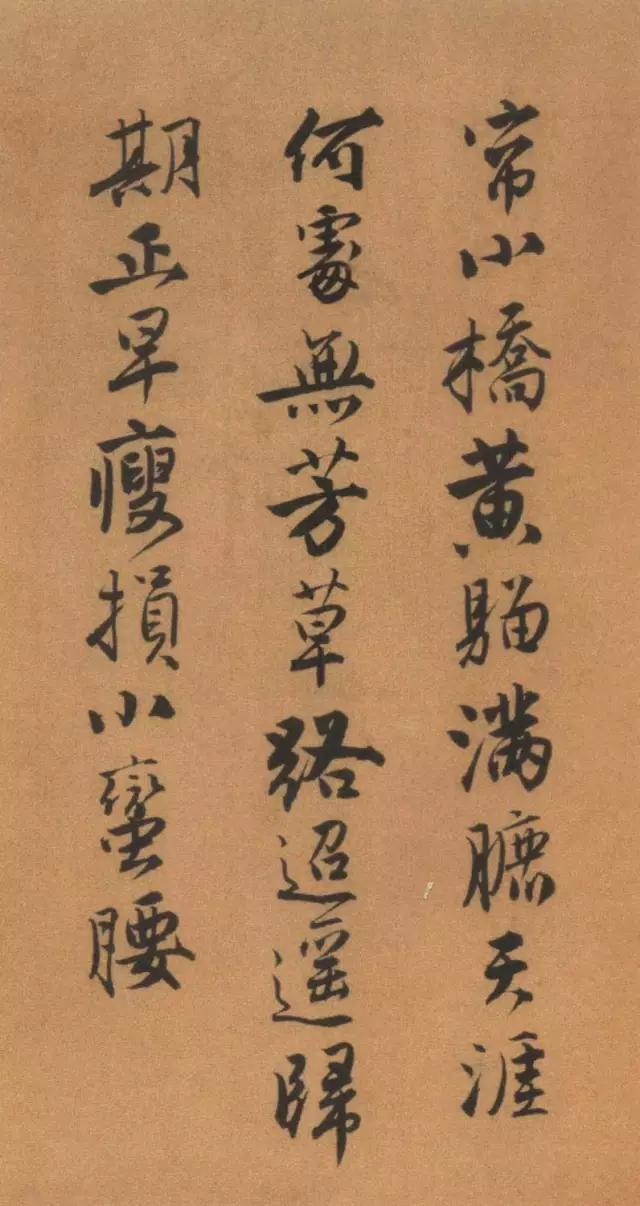 帘小橋黃滿天涯
何處無芳草路迢遥歸
期正早瘦損小蠻腰